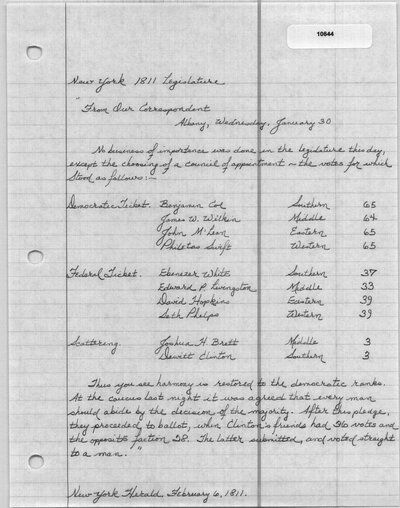 10644
New York 1811 Legislature
"From Our Correspondent
Albany, Wednesday, January 30
No business of importance was done in the legislature this day,
except the choosing of a council of appointment – the votes for which
stood as follows:–
Democratic Ticket. Benjamin Coe Southern 65
James W. Wilkin Middle 64
John McLean Eastern 65
Philetas Swift Western 65
Federal Ticket. Ebenezer White Southern 37
Edward P. Livingston Middle 33
David Hopkins Eastern 39
Seth Phelps Western 39
Scattering. Joshua H. Brett Middle 3
Dewitt Clinton Southern 3
Thus you see harmony is restored to the democratic ranks.
At the caucus last night it was agreed that every man
should abide by the decision of the majority. After this pledge,
they proceeded to ballots, when Clinton's friends had 36 votes and
the opposite faction 28. The latter submitted, and voted straight
to a man."
New York Herald. February 6, 1811.